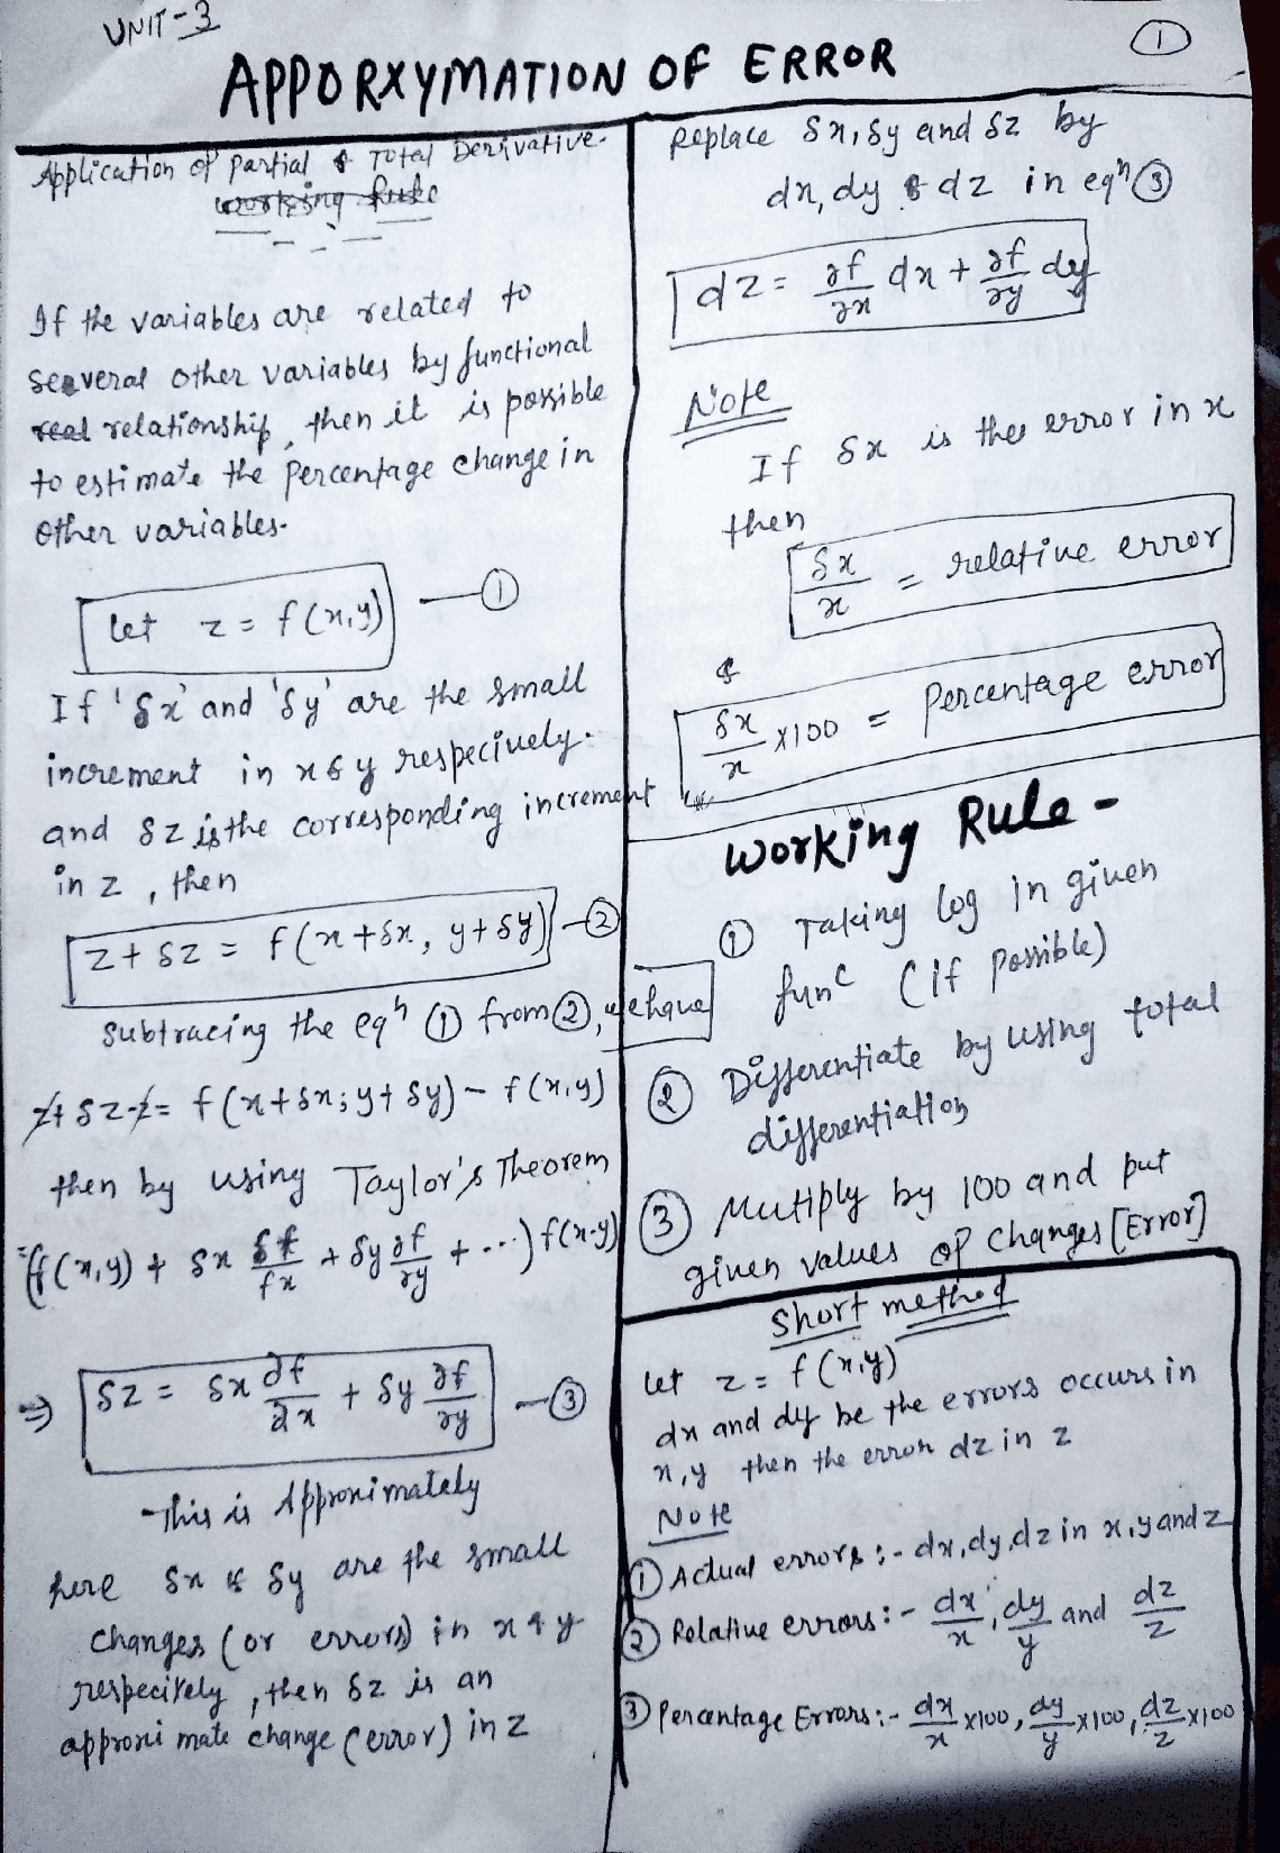 UNIT-3
①
APPORXYMATION OF ERROR
Application of partial & Total Derrivative.
working Rule
If the variables are related to
several other variables by functional
real relationship, then it is possible
to estimate the percentage change in
other variables.
let z = f(x,y) —①
If 'δx' and 'δy' are the small
increment in x & y respecively.
and δz is the corresponding increment
in z , then
z + δz = f(x+δx, y+δy) —②
Subtracing the eqⁿ ① from ②, we have
z+δz-z = f(x+δx; y+δy) – f(x,y)
then by using Taylor's Theorem
=(f(x,y) + δx δf/fx + δy ∂f/∂y + ...) f(x-y)
⇒ δz = δx ∂f/∂x + δy ∂f/∂y —③
-This is Approximately
here δx & δy are the small
changes (or errors) in x & y
respecively , then δz is an
approxi mate change (error) in z
Replace δx, δy and δz by
dx, dy & dz in eqⁿ ③
dz = ∂f/∂x dx + ∂f/∂y dy
Note
If δx is the error in x
then
δx/x = relative error
&
δx/x x100 = Percentage error
Working Rule -
① Taking log in given
funᶜ (if possible)
② Differentiate by using total
differentiation
③ Multiply by 100 and put
given values of changes [Error]
Short method
let z = f(x,y)
dx and dy be the errors occurs in
x,y then the error dz in z
Note
① Actual errors :- dx, dy, dz in x,y and z
② Relative errors :- dx/x, dy/y and dz/z
③ Percentage Errors :- dx/x x100, dy/y x100, dz/z x100